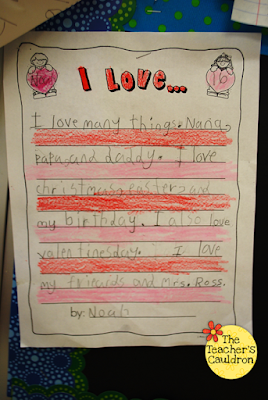 I Love...
I love many things. Nana,
papa, and daddy. I love
christmas, easter, and
my birthday. I also love
valentinesday. I love
my friends and Mrs. Ross.
by: Noah
The
Teacher's
Cauldron